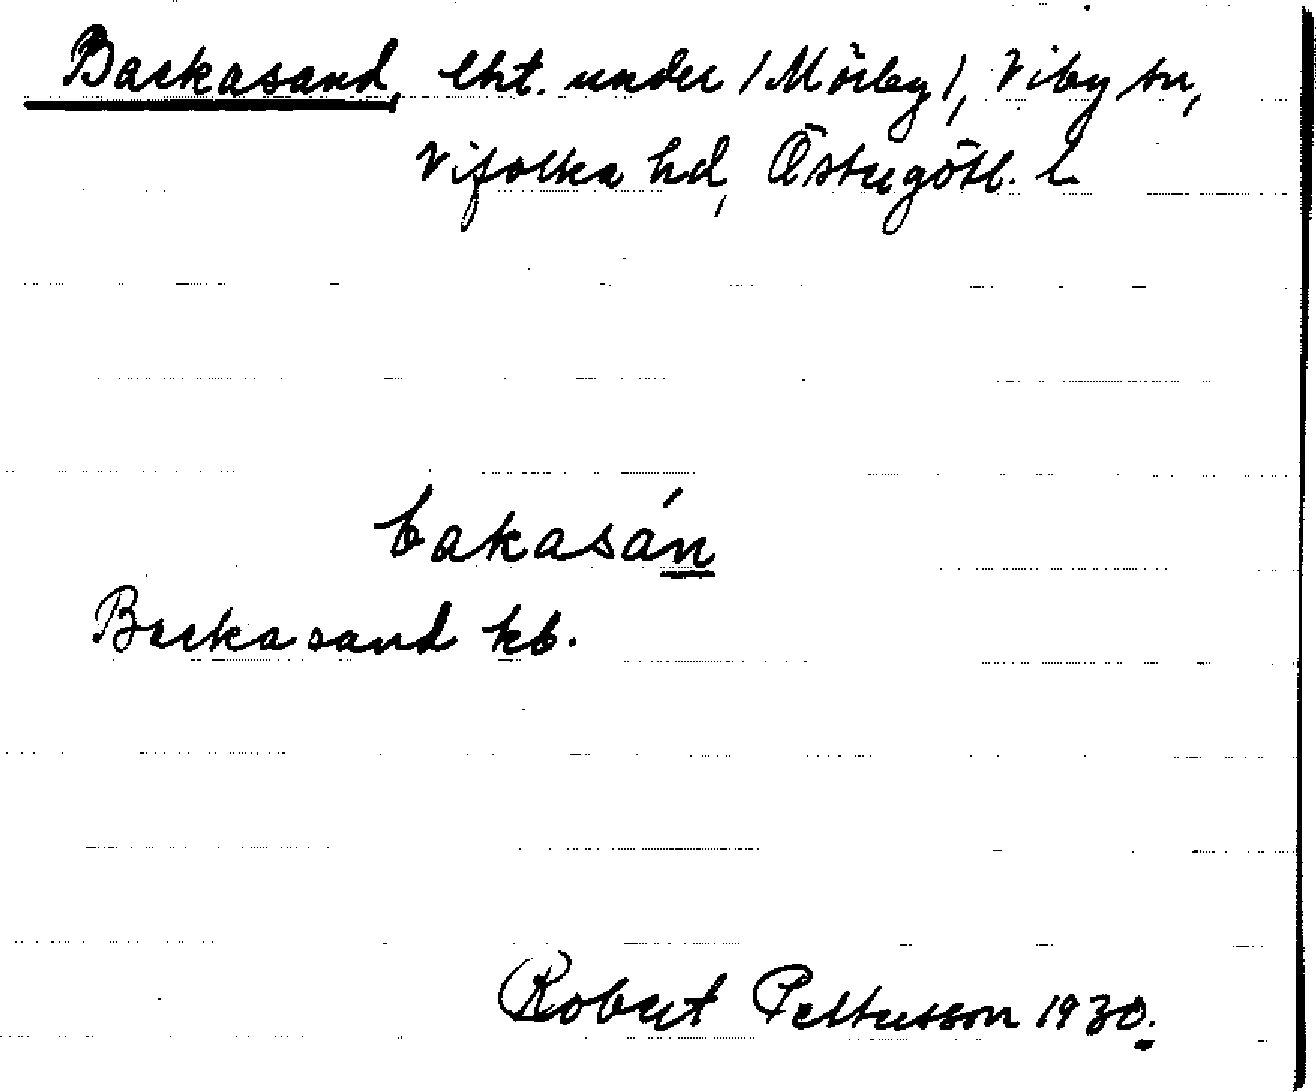 Backasand, lht. under /Mörby/, Viby sn,
Vifolka hd, Östergötl. l.
bakasán
Backasand kb.
Robert Pettersson 1930.